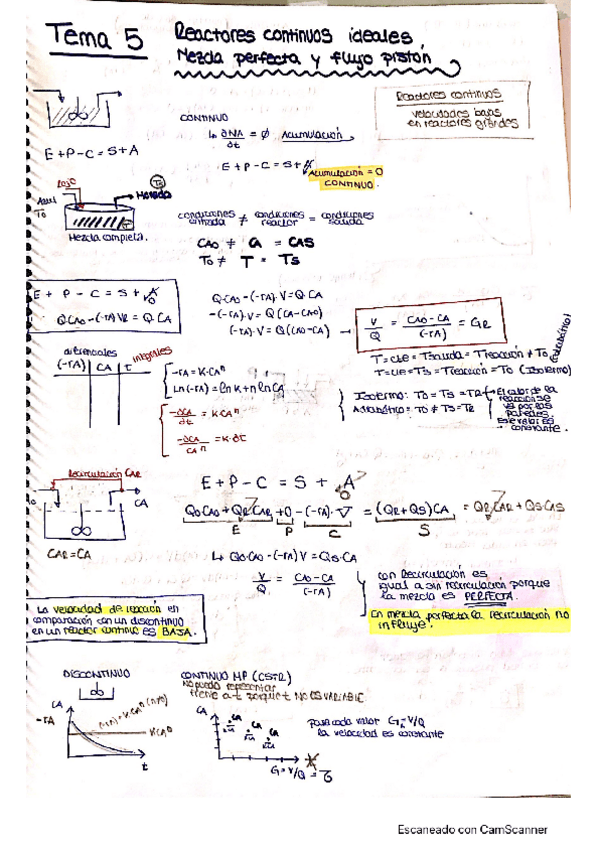 Tema 5
Reactores continuos ideales,
Mezcla perfecta y flujo pistón
Reactores continuos
velocidades bajas
en reactores grandes
CONTINUO
↳ ∂NA/∂t = ∅ Acumulación
E+P-C=S+A
E+P-C=S+A
Acumulación = 0
CONTINUO.
Rojo
Ts
Azul
Morado
T0
T
Mezcla completa.
condiciones entrada ≠ condiciones reactor = condiciones salida
CA0 ≠ CA = CAS
T0 ≠ T = TS
E + P - C = S + A
0
Q·CA0 -(-rA) VR = Q·CA
Q·CA0 -(-rA)·V = Q·CA
-(-rA)·V = Q(CA-CA0)
(-rA)·V = Q(CA0-CA) →
V/Q = CA0-CA/(-rA) = GR
diferenciales
integrales
(-rA) | CA | t
-rA = K·CAⁿ
Ln(-rA) = Ln K + n Ln CA
-∂CA/∂t = K·CAⁿ
-∂CA/CAⁿ = K·∂t
T = cte = Tsalida = Treacción ≠ T0 (Adiabático)
T = cte = Ts = Treacción = T0 (Isotermo)
Isotermo: T0 = TS = TR → El calor de la
reacción se
va por las
paredes.
Ese valor es
constante.
Adiabático: T0 ≠ TS = TR
Recirculación CAR
CA
CAR = CA
E + P - C = S + A
0
Q0CA0 + QRCAR + 0 - (-rA)·V = (QR+QS)CA = QRCAR + QSCAS
E P C S
↳ Q0·CA0 -(-rA)V = QS·CA
V/Q = CA0-CA/(-rA)
con Recirculación es
igual a sin recirculación porque
la mezcla es PERFECTA.
En mezcla perfecta la recirculación no
influye.
La velocidad de reacción en
comparación con un discontinuo
en un reactor continuo es BAJA.
DISCONTINUO
CA
-rA
t
CONTINUO MP (CSTR)
No puedo representar
frente a t porque t NO ES VARIABLE
CA
CA
CA
CA
G = V/Q = τ
para cada valor G = V/Q
la velocidad es constante
Escaneado con CamScanner